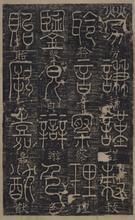 勞謙謹敕
聆音察理
鑒皃辯色
貽厥嘉猷